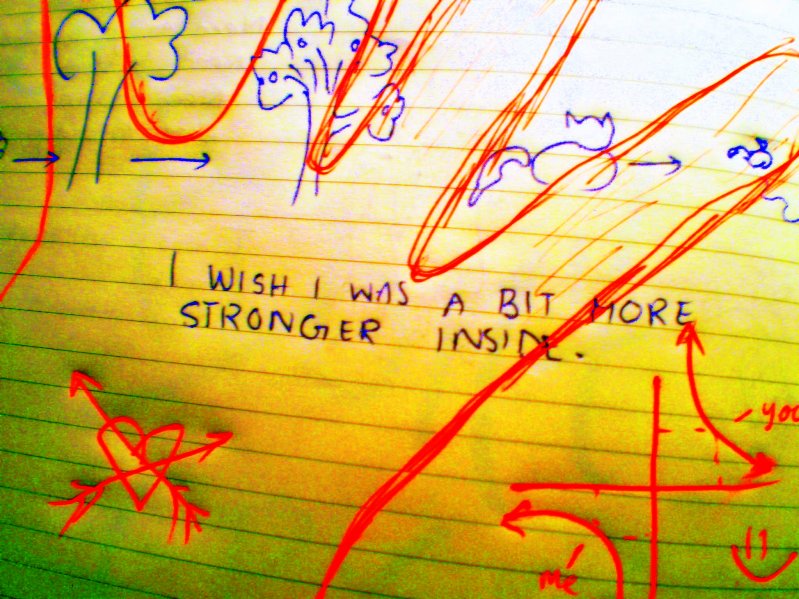 I WISH I WAS A BIT MORE
STRONGER INSIDE.
me